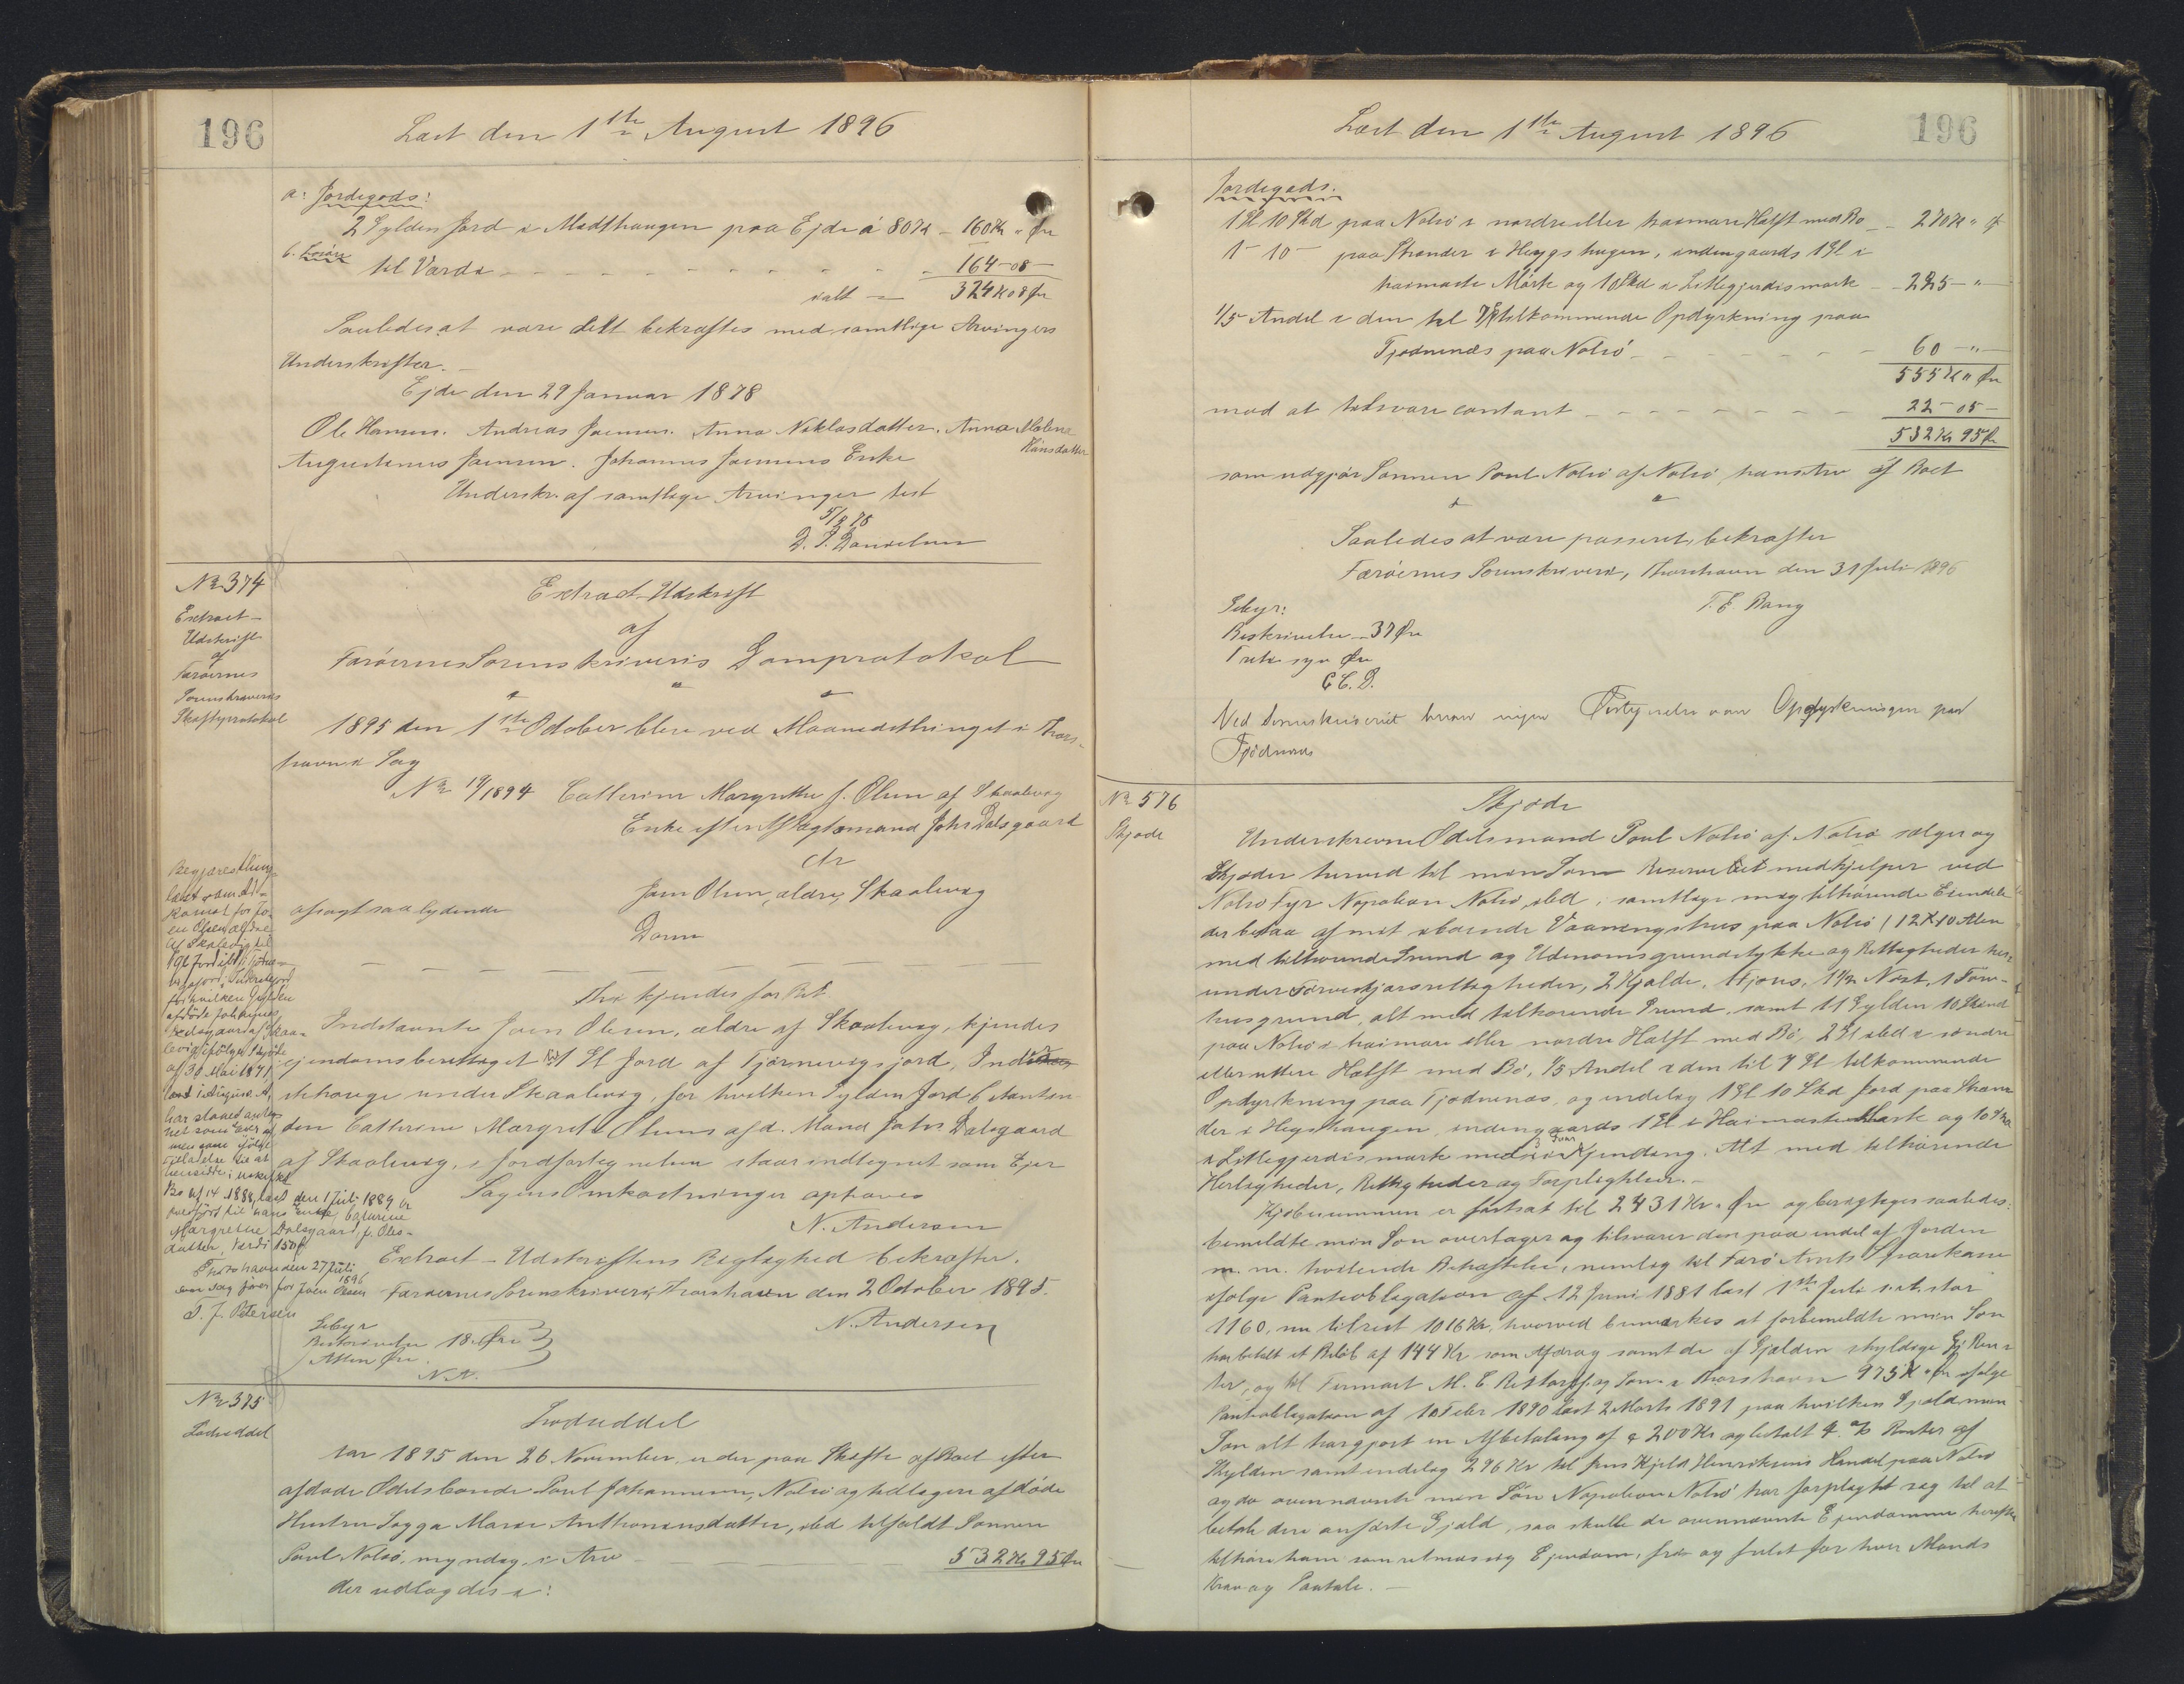 196
Læst den 1ste August 1896
a: Jordegods:
2 Gylden Jord i Midthaugen paa Ejde á 80 Kr – 160 Kr " Øre
b. Løsøre
til Værdi – – – 164 – 08 –
ialt – 324 Kr 08 Øre
Saaledes at være delt bekræftes med samtlige Arvingers
Underskrifter. –
Ejde den 29 Januar 1878
Ole Hansen. Andreas Joensen. Anna Niklasdatter. Anna Malene
Hansdatter
Augustinus Joensen. Johannes Joensens Enke
Underskr. af samtlige Arvinger test
D. P. Danielsen
No 374
Extract-
Udskrift
af
Færøernes
Sorenskriveries
Extract-Udskrift
af
Færøernes Sorenskriveris Domprotokol
1895 den 1ste October blev ved Maanedsthinget i Thors-
havn i Sag
No 19/1894 Cathrine Margrethe f. Olsen af Skaalevig
Enke efter Johs Dalsgaard
ctr
Joen Olsen, ældre, Skaalevig
afsagt saalydende
Dom
Thi kjendes for Ret.
Indstævnte Joen Olesen, ældre af Skaalevig, kjendes
ejendomsberettiget til 1 Gl Jord af Tjørnevigsjord,
under Skaalevig, for hvilken Gylden Jord
den Cathrine Margrete Olsens afd. Mand Johs Dalsgaard
af Skaalevig, i Jordfortegnelsen staar indtegnet som Ejer
Sagens Omkostninger ophæves
N. Andersen
Extract-Udskriftens Rigtighed bekræfter.
Færøernes Sorenskriveri, Thorshavn den 2 October 1895.
N. Andersen
Gebyr
Beskrivelse 18 Øre
Atten Øre.
N. A.
Begjæres thing-
læst
for Jo-
en Olsen ældre
af Skaalevig til
1 Gl Jord
for hvilken Gylden
afdøde Johannes
Dalsgaard af Skaa-
levig ifølge Skjøde
af 30 Mai 1871,
læst i August s. A,
har staaet anteg-
net som Ejer
Bo af 14 1888, læst den 1 Juli 1889 er
overført til hans Enke Cathrine
Margrethe Dalsgaard, f. Oles-
datter, Værdi 150 Kr
Thorshavn den 27 Juli
1896
for Joen Olsen
D. J. Petersen
No 375
Lodseddel
Lodseddel
Aar 1895 den 26 November, er der paa Skifte af Boet efter
afdøde Odelsbonde Poul Johannesen, Nolsø og tidligere afdøde
Hustru Sogga Marie Anthoniusdatter, ibd tilfaldt Sønnen
Poul Nolsø, myndig, i Arv – 532 Kr 95 Øre
der udlagdes i:
196
Læst den 1ste August 1896
Jordegods.
1 Gl 10 Skd paa Nolsø i nordre eller heimare Halft med Bø – 270 Kr " Ø
1 – 10 – paa Strander i Heygshagen, indengaards 1 Gl i
haimaste Mørk og 10 Skd i Litlegjerdismørk – 225 – "
1/5 Andel i den til 7 Gl tilkommende Opdyrkning paa
Tjødnenæs paa Nolsø – 60 – "
555 Kr " Øre
mod at tilsvare contant – 22 – 05 –
532 Kr 95 Øre
som udgjør Sønnen Poul Nolsø af Nolsø, hans Arv af Boet
Saaledes at være passeret, bekræfter
Færøernes Sorenskriveri, Thorshavn den 31 Juli 1896
T. E. Bang
Gebyr:
Beskrivelse – 37 Øre
Tretisyv Øre
Ved Sorenskriveriet haves ingen Oplysning om Opdyrkningen paa
Tjødnenæs
No 576
Skjøde
Skjøde
Underskrevne Odelsmand Poul Nolsø af Nolsø sælger og
Skjøder herved til min Søn medhjelper ved
Nolsø Fyr Napoleon Nolsø, ibd, samtlige mig tilhørende Eiendele
der bestaa af mit iboende Vaaningshus paa Nolsø (12 X 10 Alen
med tilhørende Grund og Udenomsgrundstykke og Rettigheder her-
under Tørveskjærsrettigheder, 2 Hjalde, 1 Hjons, 1 1/2 Nøst, 1 Tørv-
husgrund, alt med tilhørende Grund, samt 11 Gylden 10 Skind
paa Nolsø i haimare eller nordre Halft med Bø, 2 Gl ibd i søndre
eller uttere Halft med Bø, 1/5 Andel i den til 7 Gl tilkommende
Opdyrkning paa Tjødnenæs, og endelig 1 Gl 10 Skd Jord paa Stran-
der i Heygshaugen, indengaards 1 Gl i Haimaste Mørk og 10 Skd
i Litlegjerdismørk med Alt med tilhørende
Herligheder, Rettigheder og Forpligtelser. –
Kjøbesummen er fastsat til 2431 Kr " Øre og berigtiges saaledes:
bemeldte min Søn overtager og tilsvarer den paa endel af Jorden
m. m. hvilende Behæftelse, nemlig til Færø Amts Sparekasse
ifølge Panteobligation af 12 Juni 1881 læst 1ste Juli s. A. stor
1160, nu tilrest 1016 Kr, hvorved bemærkes at forbemeldte min Søn
har betalt et Beløb af 144 Kr som Afdrag samt de af Gjælden skyldige Ren-
ter, og til Firmaet M. C. Restorff og Søn i Thorshavn 975 Kr " Øre ifølge
Panteobligation af 10 Febr 1890 læst 2 Marts 1891 paa hvilken Gjæld min
Søn alt har gjort en Afbetaling af 200 Kr og betalt 4 % Renter af
Gjælden samt endelig 296 Kr til Jens Kjeld Henriksens Handel paa Nolsø
og da ovennævnte min Søn Napoleon Nolsø har forpligtet sig til at
betale den anførte Gjæld, saa skulle de ovennævnte Ejendomme herefter
tilhøre ham som retmæssig Ejendom, fri og frelst for hver Mands
Krav og Paatale. –